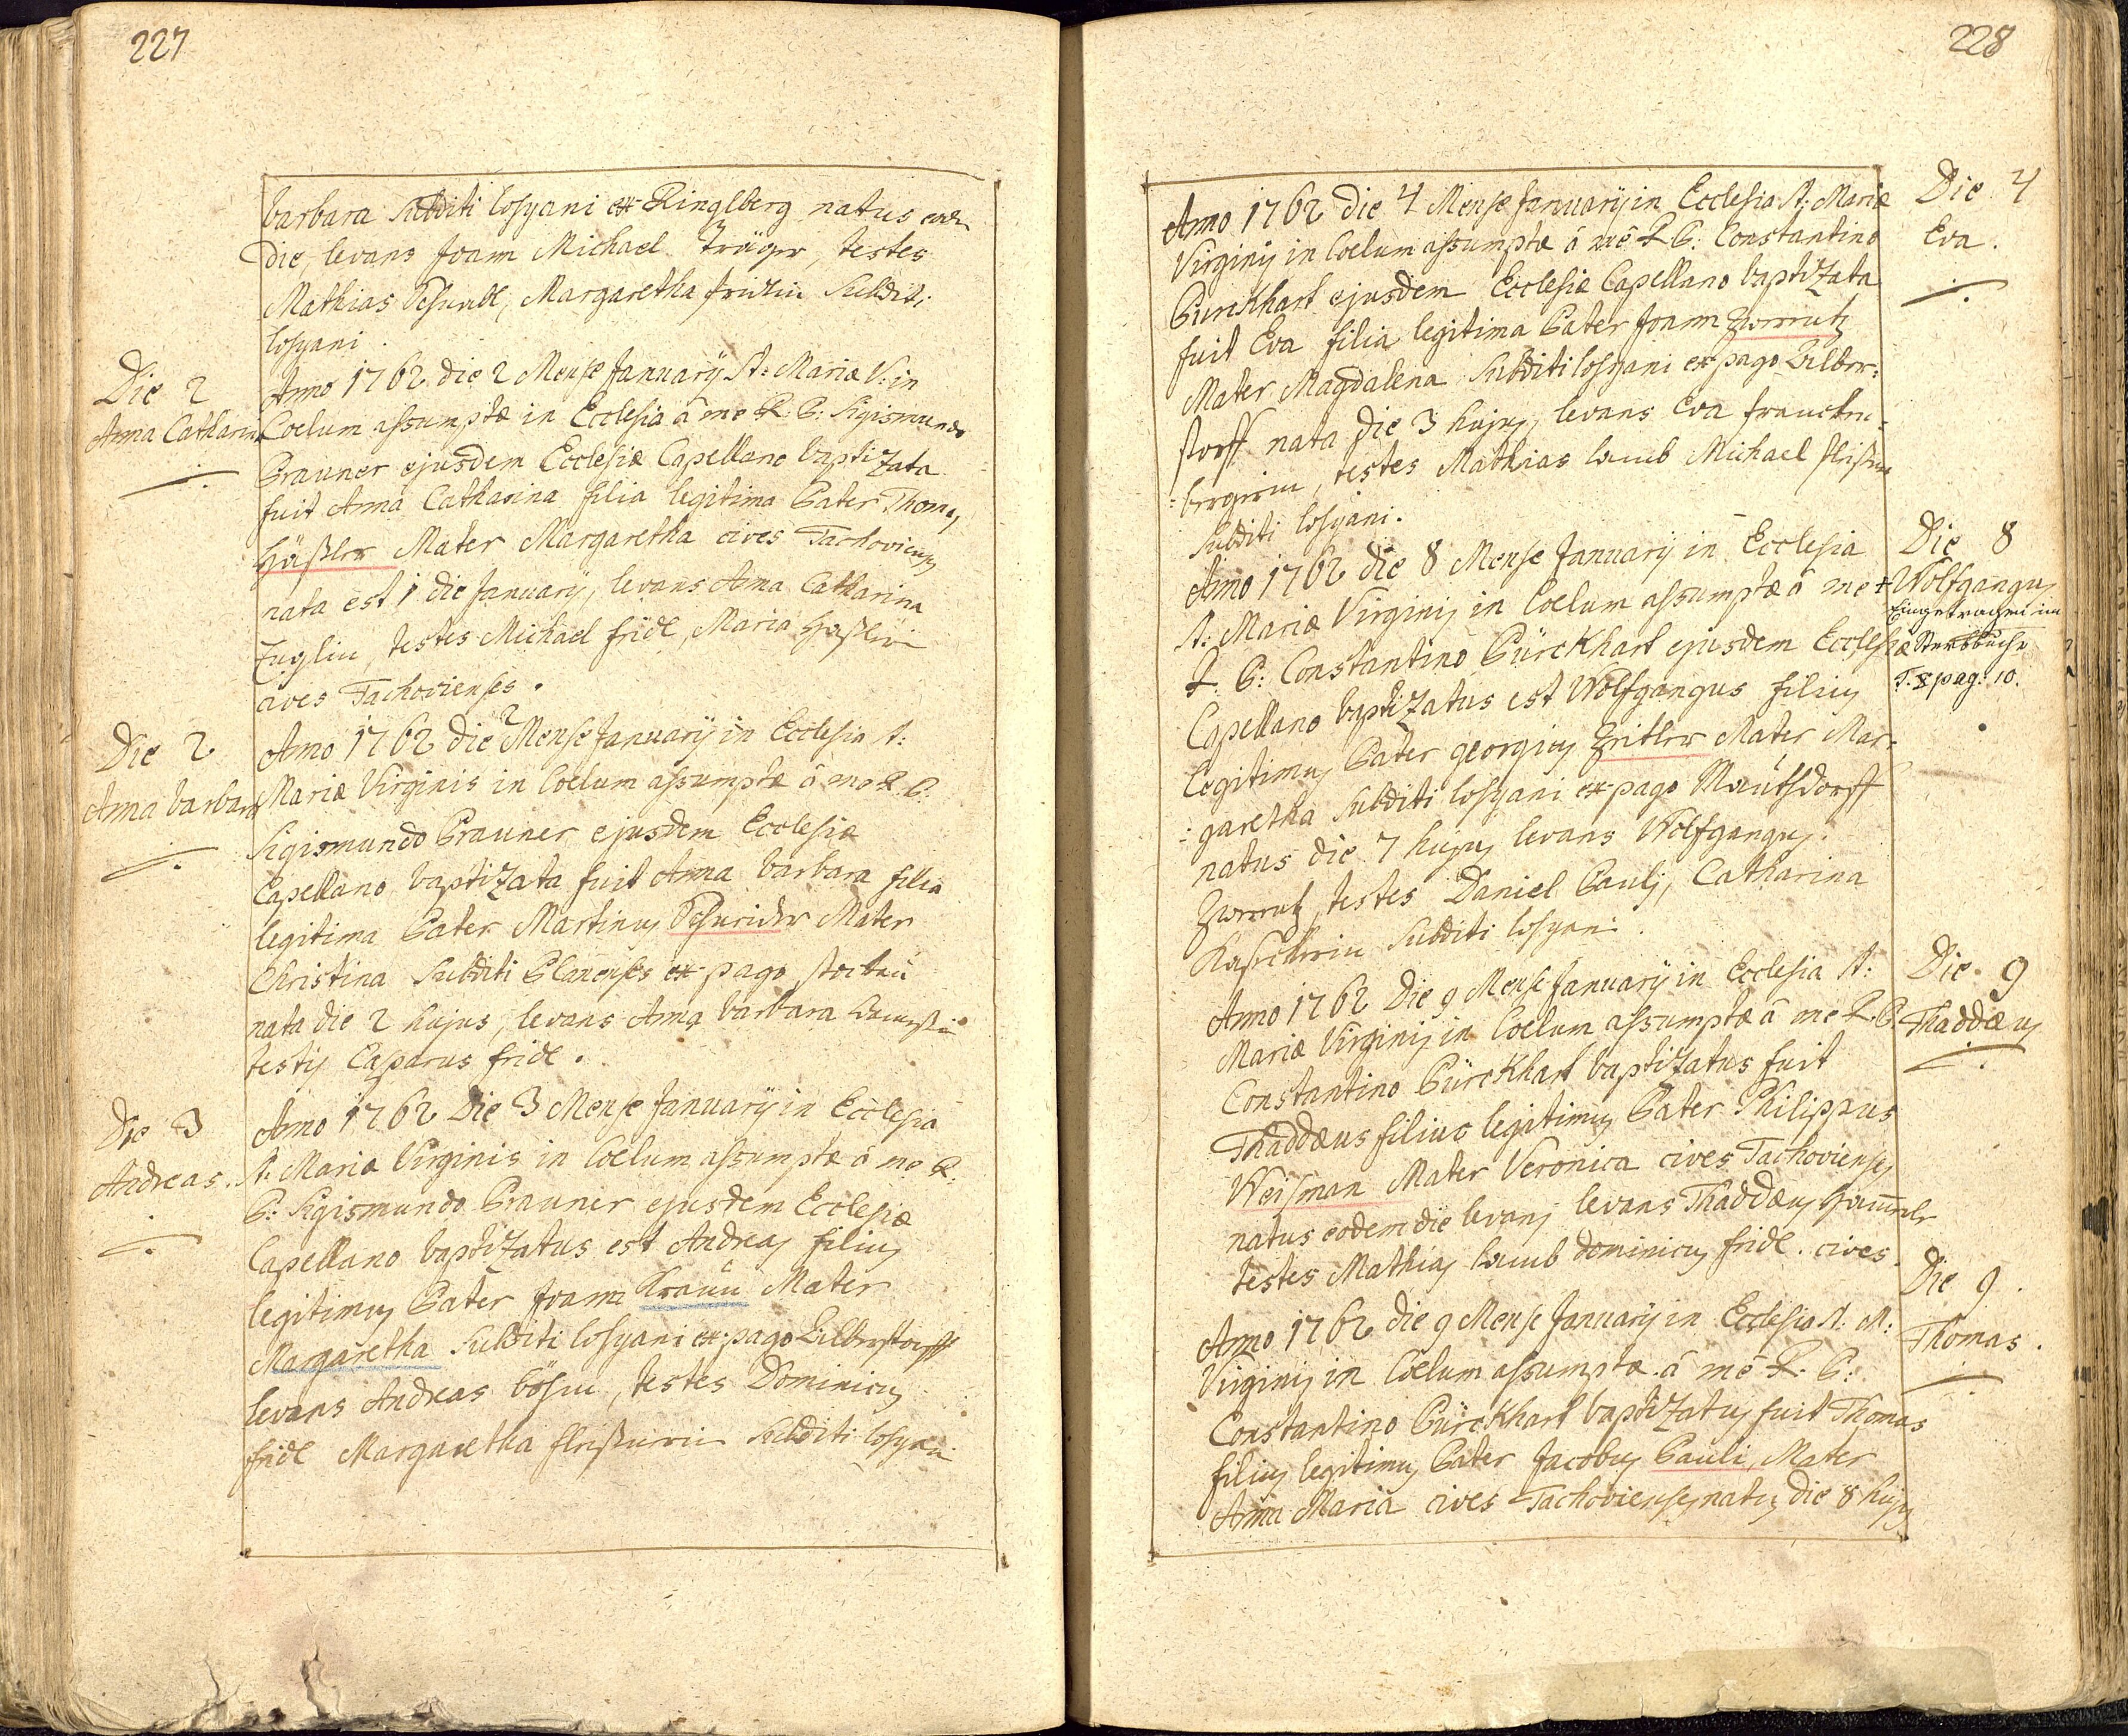 227
barbara Subditi losyani ex Ringlberg natus eodem
die, levans Joann Michael Träger, testes
Mathias, Margaretha fridlin Subditi
losyani.
Die 2
Anna Catharina
Anno 1762 die 2 Mense Januarÿ St: Mariæ V: in
Coelum assumptæ in Ecclesia â me R: P: Sigismundo
Prauner ejusdem Ecclesiæ Capellano baptizata
fuit Anna Catharina filia legitima Pater Thomas
Häßler Mater Margaretha cives Tachovienses
nata est 1 die Januarÿ, levans Anna Catharina
Zuglin, testes Michael fridl, Maria Häßlerin
cives Tachovienses.
Die 2
Anna barbara
Anno 1762 die 2 Mense Januarÿ in Ecclesia St:
Mariæ Virginis in Coelum assumptæ â me R. P.
Sigismundo Prauner ejusdem Ecclesiæ
Capellano baptizata fuit Anna barbara filia
legitima Pater Martinus Schneider Mater
Christina Subditi Planenses ex pago stockau
nata die 2 hujus, levans Anna barbara
testis Casparus fridl.
Die 3
Andreas.
Anno 1762 Die 3 Mense Januarÿ in Ecclesia
St: Mariæ Virginis in Coelum assumptæ â me R:
P: Sigismundo Prauner ejusdem Ecclesiæ
Capellano baptizatus est Andreas filius
legitimus Pater Joann Kraun Mater
Margaretha Subditi losyani ex pago Zilberstorff
levans Andreas böhm, testes Dominicus
fridl Margaretha fleißnerin Subditi losyani
228
Anno 1762 die 4 Mense Januarÿ in Ecclesia St: Mariæ
Virginis in Coelum assumptæ â mê R P: Constantino
Pürckhart ejusdem Ecclesiæ Capellano baptizata
fuit Eva filia legitima Pater Joann Zwerentz
Mater Magdalena Subditi losyani ex pago Zilber:
storff nata die 3 hujus, levans Eva francken:
:bergerin, testes Mathias lamb Michael fleißner
Subditi losyani.
Die 4
Eva.
Anno 1762 die 8 Mense Januarÿ in Ecclesia
St: Mariæ Virginis in Coelum assumptæ â me
R: P: Constantino Pürckhart ejusdem Ecclesiæ
Capellano baptizatus est Wolfgangus filius
legitimus Pater georgius Zeitler Mater Mar:
:garetha Subditi losyani ex pago Mauthdorff
natus die 7 hujus levans Wolfgangus
Zwerentz, testes Daniel Pauli, Catharina
Subditi losyani.
Die 8
+ Wolfgangus
Eingetragen im
Sterbbuch
T: X pag: 10.
Anno 1762 Die 9 Mense Januarÿ in Ecclesia St:
Mariæ Virginis in Coelum assumptæ â me R. P.
Constantino Pürckhart baptizatus fuit
Thaddæus filius legitimus Pater Philippus
Weisman Mater Veronica cives Tachovienses
natus eodem die levans levans Thaddæus Hammerle
testes Mathias lamb dominicus fridl. cives.
Die 9
Thaddæus
Anno 1762 die 9 Mense Januarÿ in Ecclesia St. M:
Virginis in Coelum assumptæ â mê R. P:
Constantino Pürckhart baptizatus fuit Thomas
filius legitimus Pater Jacobus Pauli, Mater
Anna Maria cives Tachovienses natus die 8 hujus
Die 9.
Thomas.